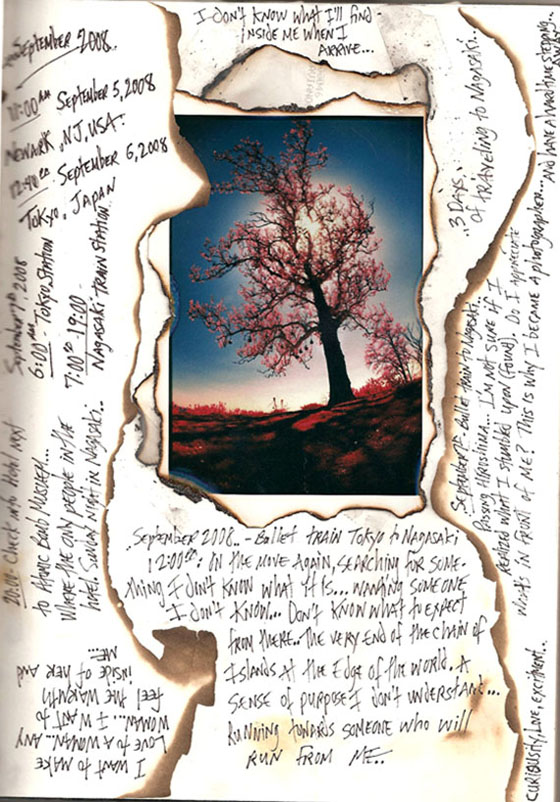 I DON'T KNOW WHAT I'LL FIND
INSIDE ME WHEN I
ARRIVE...
SEPTEMBER 2008.
SEPTEMBER 5, 2008
NEWARK, NJ, USA.
SEPTEMBER 5, 2008
TOKYO, JAPAN
SEPTEMBER 7th, 2008
6:00 am - TOKYO STATION
7:00 - 19:00 -
NAGASAKI TRAIN STATION
20:00 - CHECK INTO HOTEL NEXT
TO ATOMIC BOMB MUSEUM...
WHERE THE ONLY PEOPLE IN THE
HOTEL. SUNDAY NIGHT IN NAGASAKI..
I WANT TO MAKE
LOVE TO A WOMAN... ANY
WOMAN... I WANT TO
FEEL THE WARMTH
INSIDE OF HER AND
ME...
SEPTEMBER 2008. - BULLET TRAIN TOKYO TO NAGASAKI
12:00 : ON THE MOVE AGAIN, SEARCHING FOR SOME-
THING I DON'T KNOW WHAT IT IS... WANTING SOMEONE
I DON'T KNOW... DON'T KNOW WHAT TO EXPECT
FROM THERE.. THE VERY END OF THE CHAIN OF
ISLANDS AT THE EDGE OF THE WORLD. A
SENSE OF PURPOSE I DON'T UNDERSTAND...
RUNNING TOWARDS SOMEONE WHO WILL
RUN FROM ME..
3 DAYS,
OF TRAVELING TO NAGASAKI..
BULLET TRAIN TO NAGASAKI
PASSING HIROSHIMA... I'M NOT SURE IF I
REALIZED WHAT I STUMBLED UPON (FOUND). DO I APPRECIATE
WHATS IN FRONT OF ME? THIS IS WHY I BECAME A PHOTOGRAPHER...
CURIOUSITY, LOVE, EXCITMENT..
AND HAVE A HARD TIME